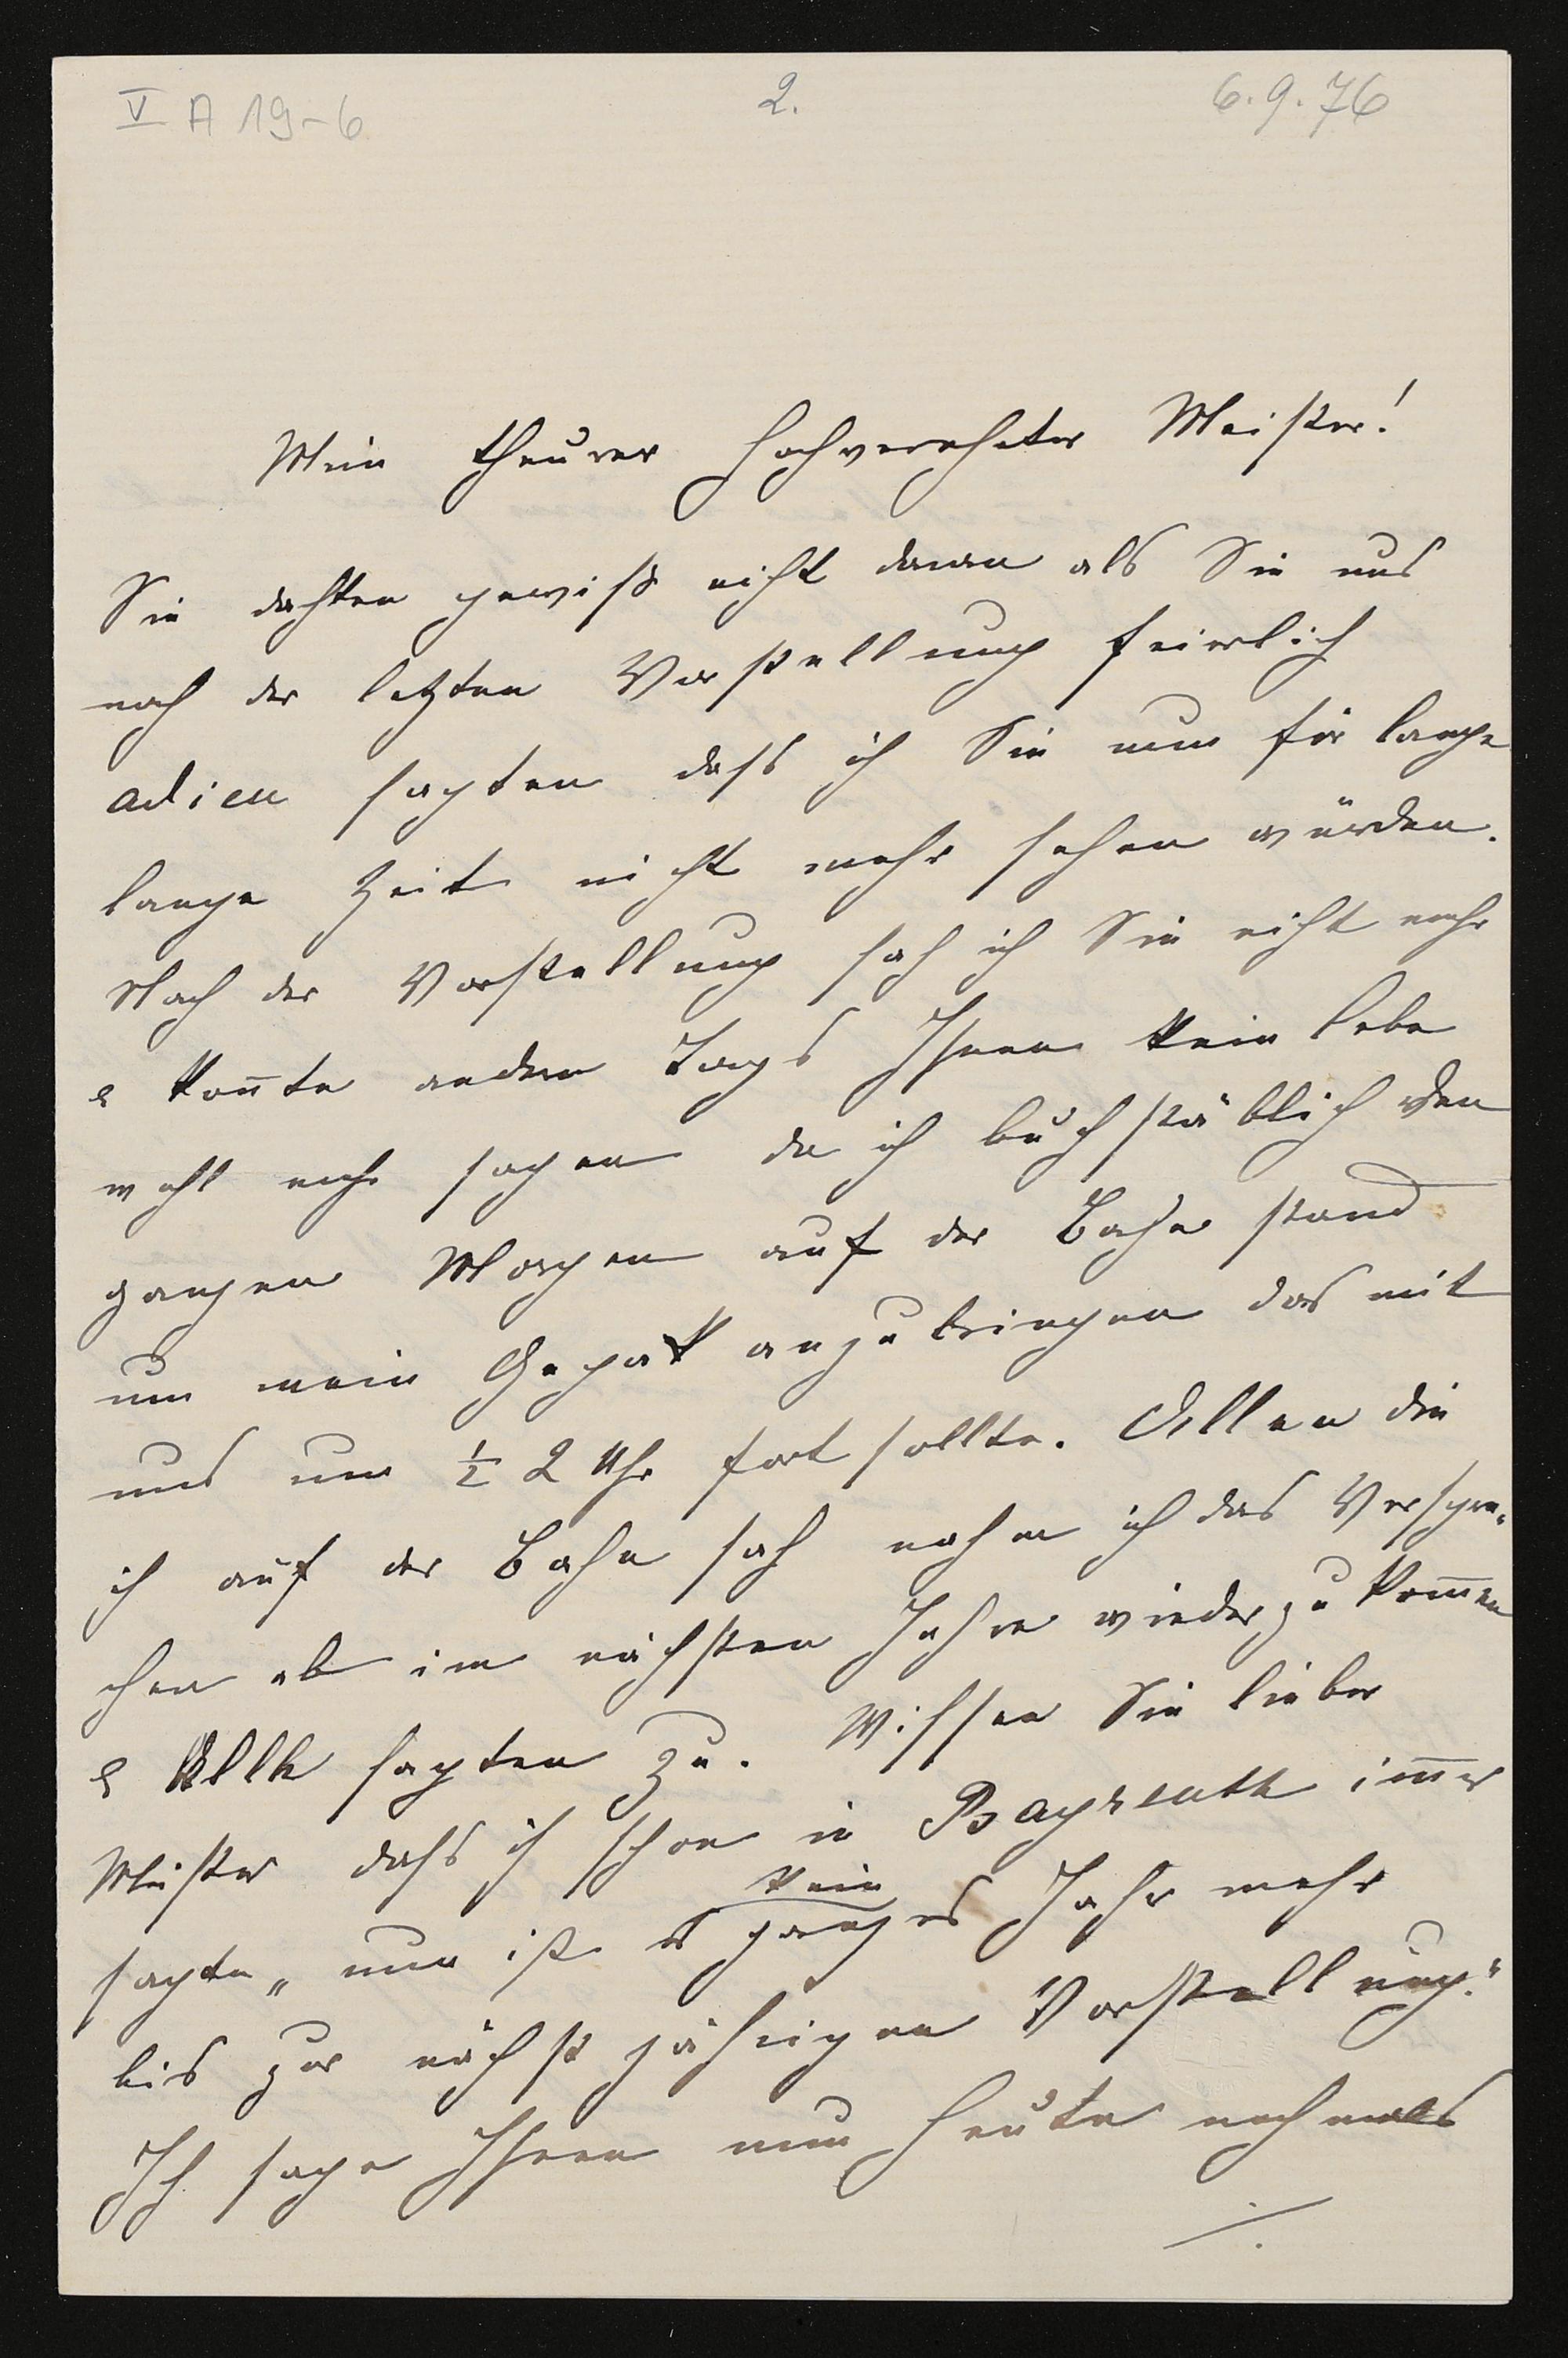 V A 19-6 2. 6.9.76
Mein theurer hochverehrter Meister!
Sie dachten gewiß nicht daran als Sie uns
nach der letzten Vorstellung feierlich
adieu sagten daß ich Sie nun für lange
lange Zeit nicht mehr sehen würden.
Nach der Vorstellung sah ich Sie nicht mehr
& kon̄te andern Tags Ihnen kein lebe
wohl mehr sagen da ich buchstäblich den
ganzen Morgen auf der Bahn stand
um mein Gepäk anzubringen das mit
uns um ½ 2 Uhr fort sollte. Allen die
ich auf der Bahn sah nahm ich das Verspre-
chen ab im nächsten Jahre wieder zu kom̄en
& Alle sagten zu. Wissen Sie lieber
Meister daß ich schon in Bayreuth im̄er
sagte „nun ist es kein ganzes Jahr mehr
bis zur nächst jährigen Vorstellung."
Ich sage Ihnen nun heute nochmals
./.